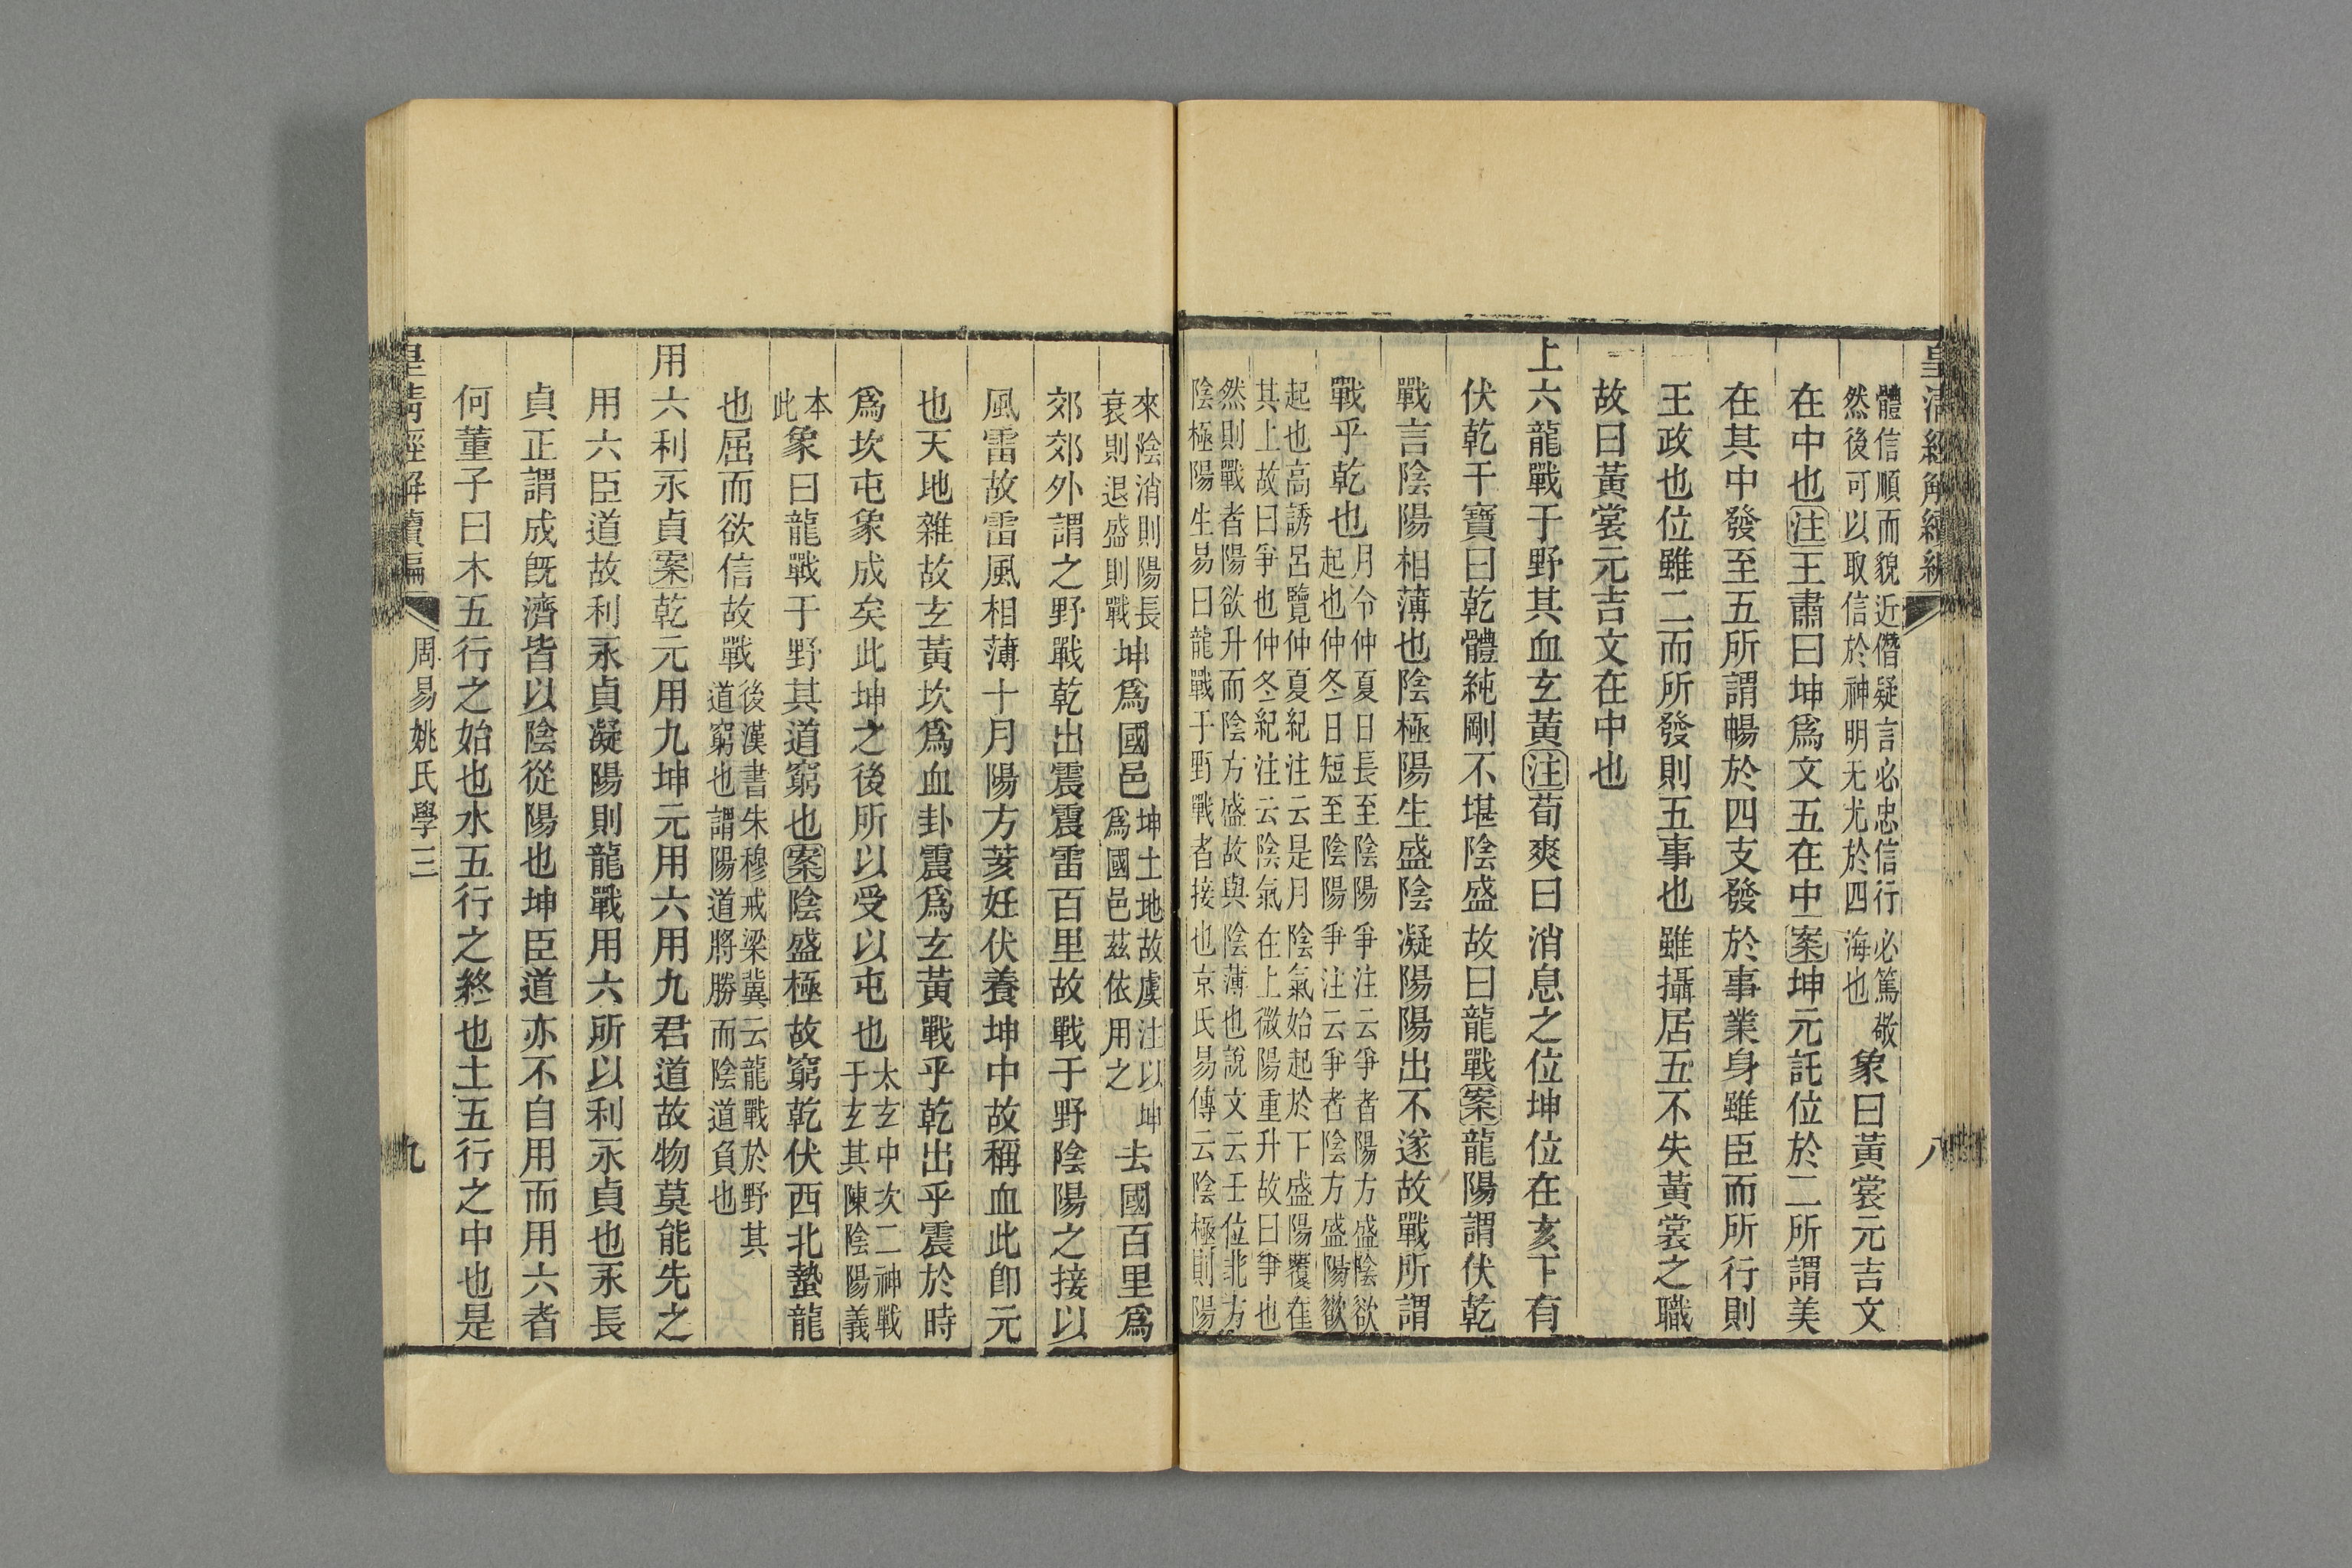 皇清經解續編
八
體信順而貌近僭疑言必忠信行必篤敬
然後可以取信於神明无尤於四海也
象曰黃裳元吉文
在中也注王肅曰坤爲文五在中案坤元託位於二所謂美
在其中發至五所謂暢於四支發於事業身雖臣而所行則
王政也位雖二而所發則五事也雖攝居五不失黃裳之職
故曰黃裳元吉文在中也
上六龍戰于野其血玄黃注荀爽曰消息之位坤位在亥下有
伏乾干寶曰乾體純剛不堪陰盛故曰龍戰案龍陽謂伏乾
戰言陰陽相薄也陰極陽生盛陰凝陽陽出不遂故戰所謂
戰乎乾也
月令仲夏日長至陰陽爭注云爭者陽方盛陰欲
起也仲冬日短至陰陽爭注云爭者陰方盛陽欲
起也高誘呂覽仲夏紀注云是月陰氣始起於下盛陽覆在
其上故曰爭也仲冬紀注云陰氣在上微陽重升故曰爭也
然則戰者陽欲升而陰方盛故與陰薄也說文云壬位北方
陰極陽生易曰龍戰于野戰者接也京氏易傳云陰極則陽
來陰消則陽長
衰則退盛則戰
坤爲國邑
坤土地故虞注以坤
爲國邑茲依用之
去國百里爲
郊郊外謂之野戰乾出震震雷百里故戰于野陰陽之接以
風雷故雷風相薄十月陽方荄妊伏養坤中故稱血此卽元
也天地雜故玄黃坎爲血卦震爲玄黃戰乎乾出乎震於時
爲坎屯象成矣此坤之後所以受以屯也
太玄中次二神戰
于玄其陳陰陽義
本
此
象曰龍戰于野其道窮也案陰盛極故窮乾伏西北蟄龍
也屈而欲信故戰
後漢書朱穆戒梁冀云龍戰於野其
道窮也謂陽道將勝而陰道負也
用六利永貞案乾元用九坤元用六用九君道故物莫能先之
用六臣道故利永貞凝陽則龍戰用六所以利永貞也永長
貞正謂成旣濟皆以陰從陽也坤臣道亦不自用而用六者
何董子曰木五行之始也水五行之終也土五行之中也是
皇清經解續編
周易姚氏學三
九